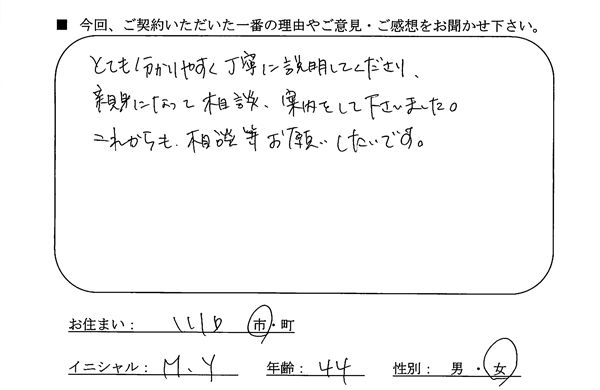 ■ 今回、ご契約いただいた一番の理由やご意見・ご感想をお聞かせ下さい。
とても分かりやすく丁寧に説明してくださり、
親身になって相談、案内をして下さいました。
これからも、相談等お願いしたいです。
お住まい： 市・町
イニシャル： M.Y 年齢： 44 性別： 男 ・ 女